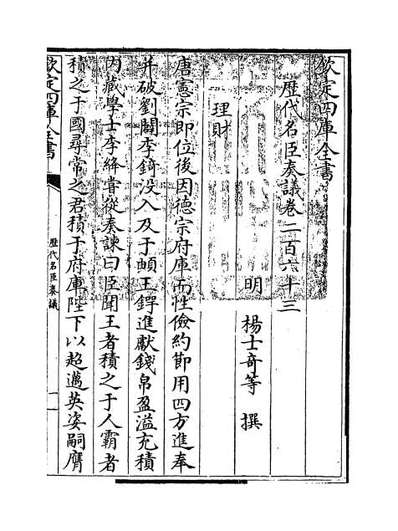 欽定四庫全書
歷代名臣奏議卷二百六十三
明 楊士奇等 撰
理財
唐憲宗即位後因德宗府庫而性儉約節用四方進奉
并破劉闢李錡没入及于頔王鍔進獻錢帛盈溢充積
内藏學士李絳嘗從奏諫曰臣聞王者積之于人霸者
積之于國尋常之君積于府庫陛下以超邁英姿嗣膺
欽定四庫全書
歷代名臣奏議
一